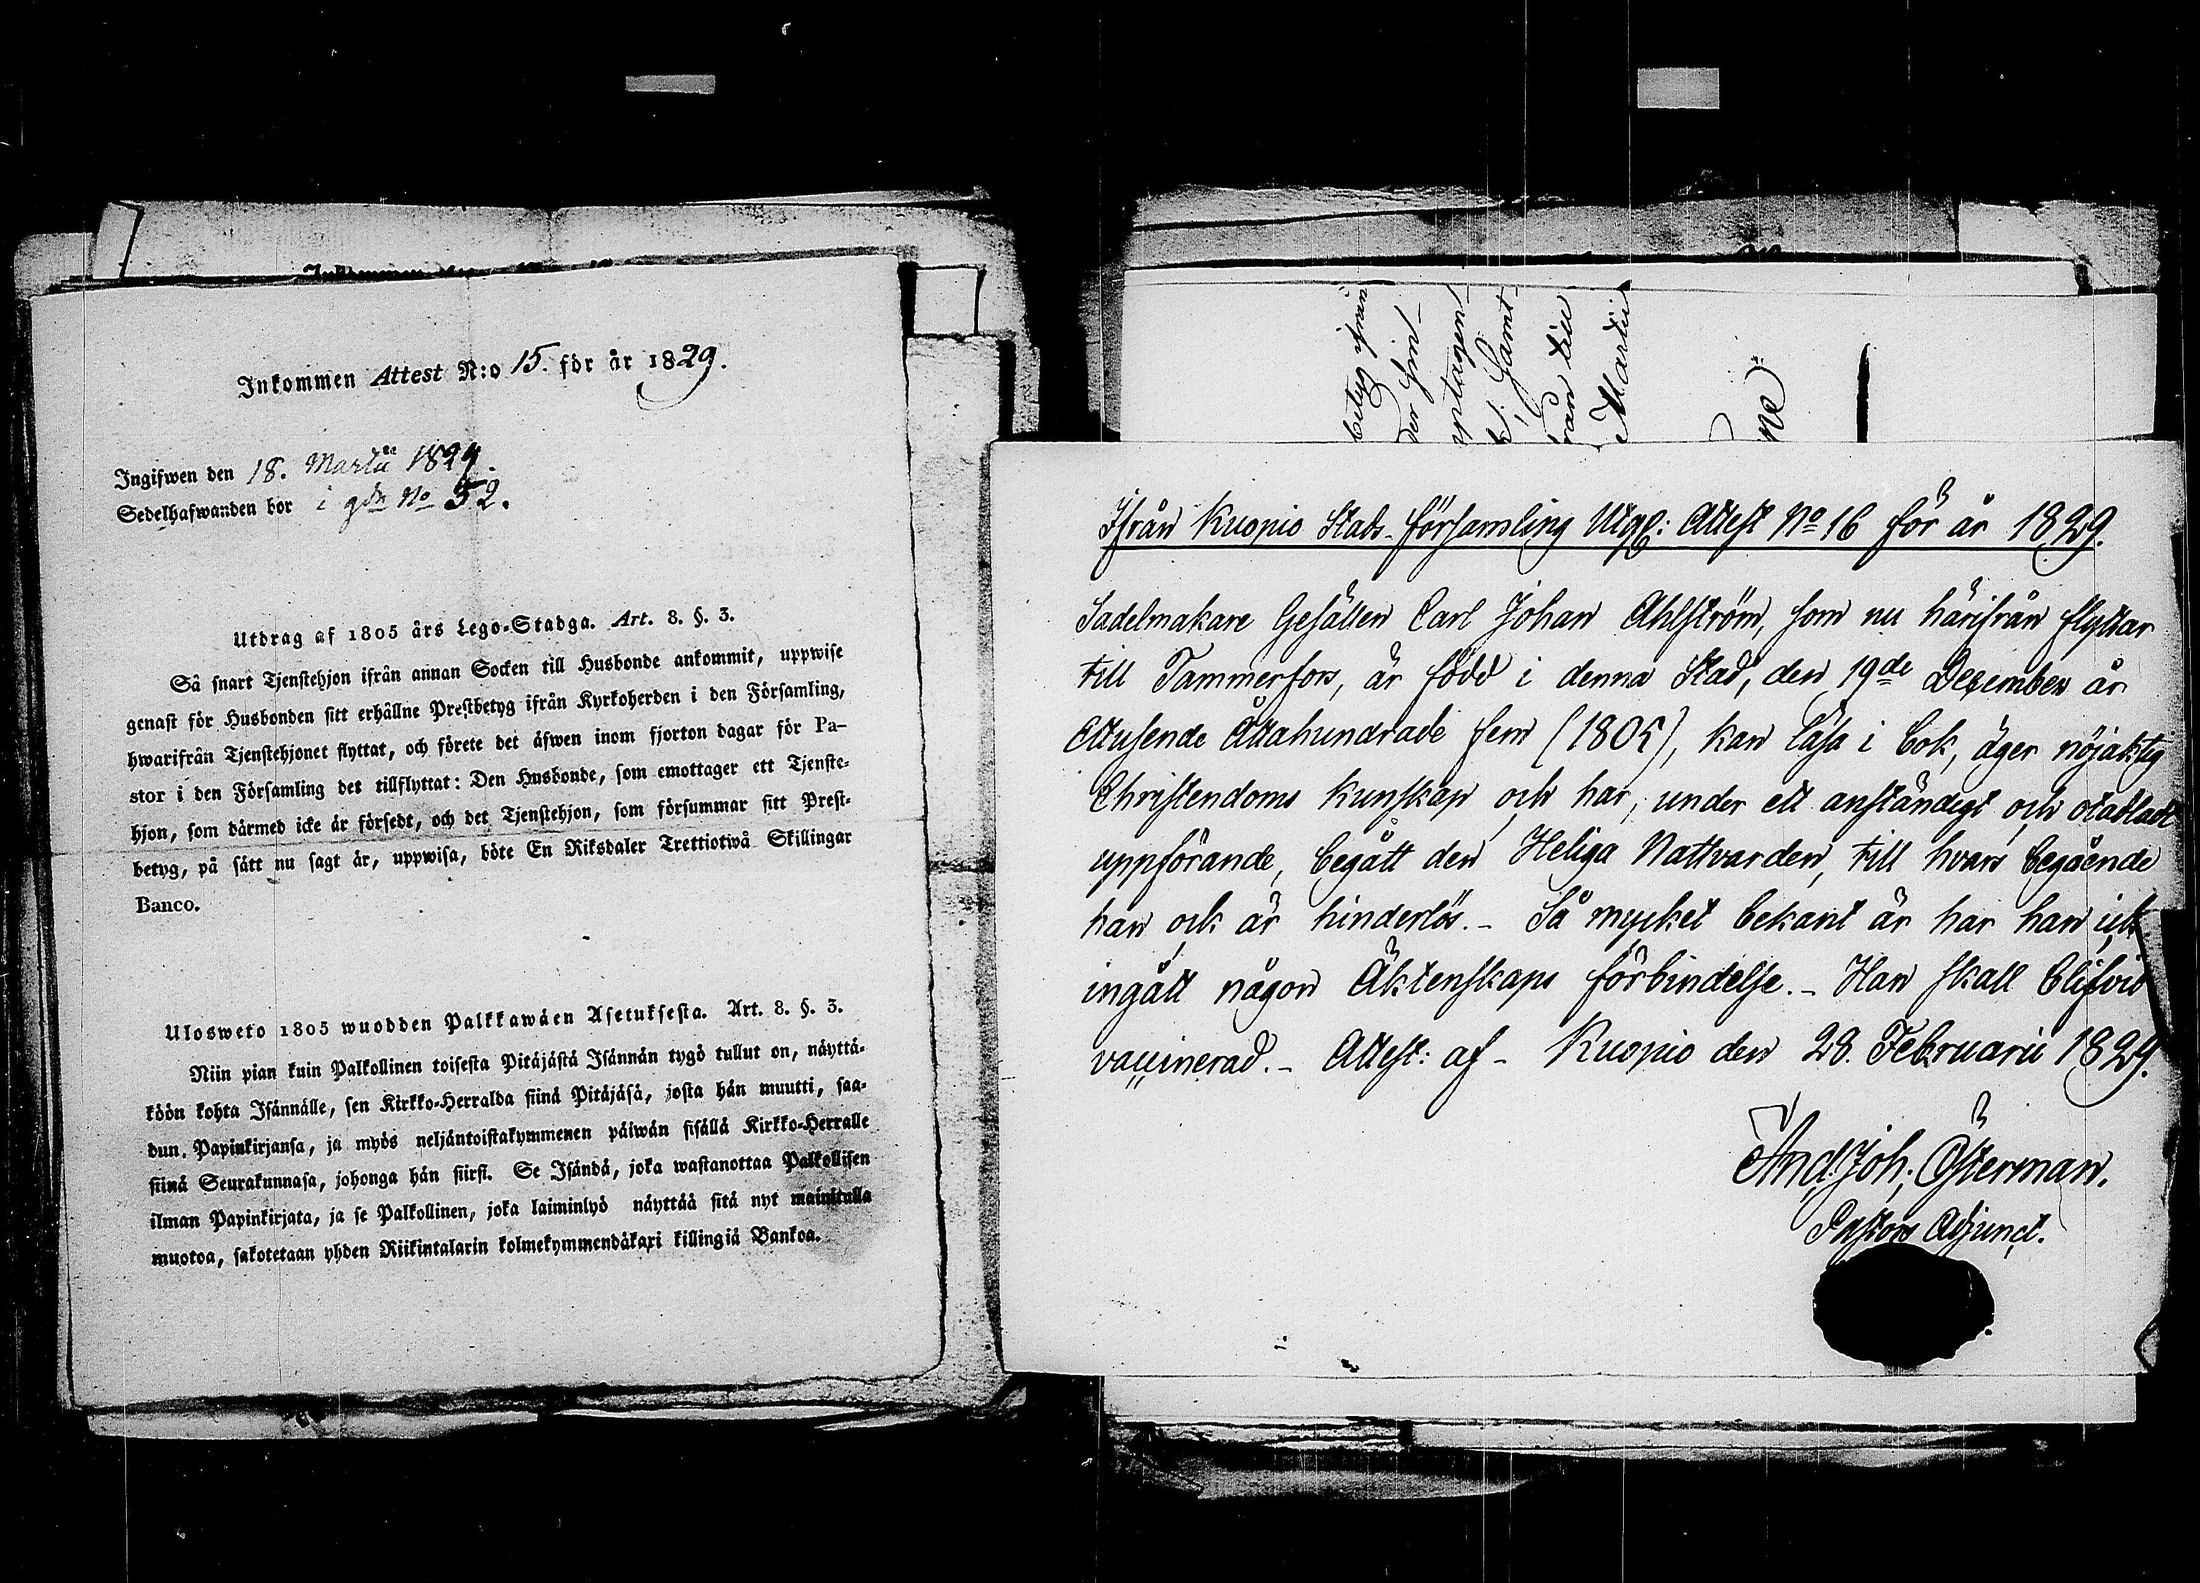 Inkommen Attest N:o 15. för år 1829.
Ingifwen den 18. Martii 1829.
Sedelhafwanden bor i gdn No 52.
Utdrag af 1805 års Lego-Stadga. Art. 8. §. 3.
Så snart Tjenstehjon ifrån annan Socken till Husbonde ankommit, uppwise
genast för Husbonden sitt erhållne Prestbetyg ifrån Kyrkoherden i den Församling,
hwarifrån Tjenstehjonet flyttat, och förete det äfwen inom fjorton dagar för Pa-
stor i den Församling det tillflyttat: Den Husbonde, som emottager ett Tjenste-
hjon, som därmed icke är försedt, och det Tjenstehjon, som försummar sitt Prest-
betyg, på sätt nu sagt är, uppwisa, böte En Riksdaler Trettiotwå Skillingar
Banco.
Ulosweto 1805 wuodden Palkkawäen Asetuksesta. Art. 8. §. 3.
Niin pian kuin Palkollinen toisesta Pitäjästä Isännän tygö tullut on, näyttä-
köön kohta Isännälle, sen Kirkko-Herralda siinä Pitäjäsä, josta hän muutti, saa-
dun Papinkirjansa, ja myös neljäntoistakymmenen päiwän sisällä Kirkko-Herralle
siinä Seurakunnasa, johonga hän siirsi. Se Isändä, joka wastanottaa Palkollisen
ilman Papinkirjata, ja se Palkollinen, joka laiminlyö näyttää sitä nyt mainitulla
muotoa, sakotetaan yhden Riikintalarin kolmekymmendäkaxi killingiä Bankoa.
betyg ifrån
ptagen
Samt
rån till
Martii
Ifrån Kuopio Stads-församling Utgf: Attest No 16 för år 1829.
Sadelmakare Gesällen Carl Johan Ahlström, som nu härifrån flyttar
till Tammerfors, är född i denna Stad, den 19de Dezember år
Attusende Åttahundrade fem (1805), kan läsa i bok, äger nöjaktig
Christendoms kunskap och har, under ett anständigt och otadladt
uppförande, begått den Heliga Nattvarden, till hvars begående
han ock är hinderlös. - Så mycket bekant är har han ick
ingått någon Äktenskaps förbindelse. - Han skall blifvit
vaccinerad. - Attest: af - Kuopio den 28. Februarii 1829.
And. Joh. Österman.
Pastors Adjunct.